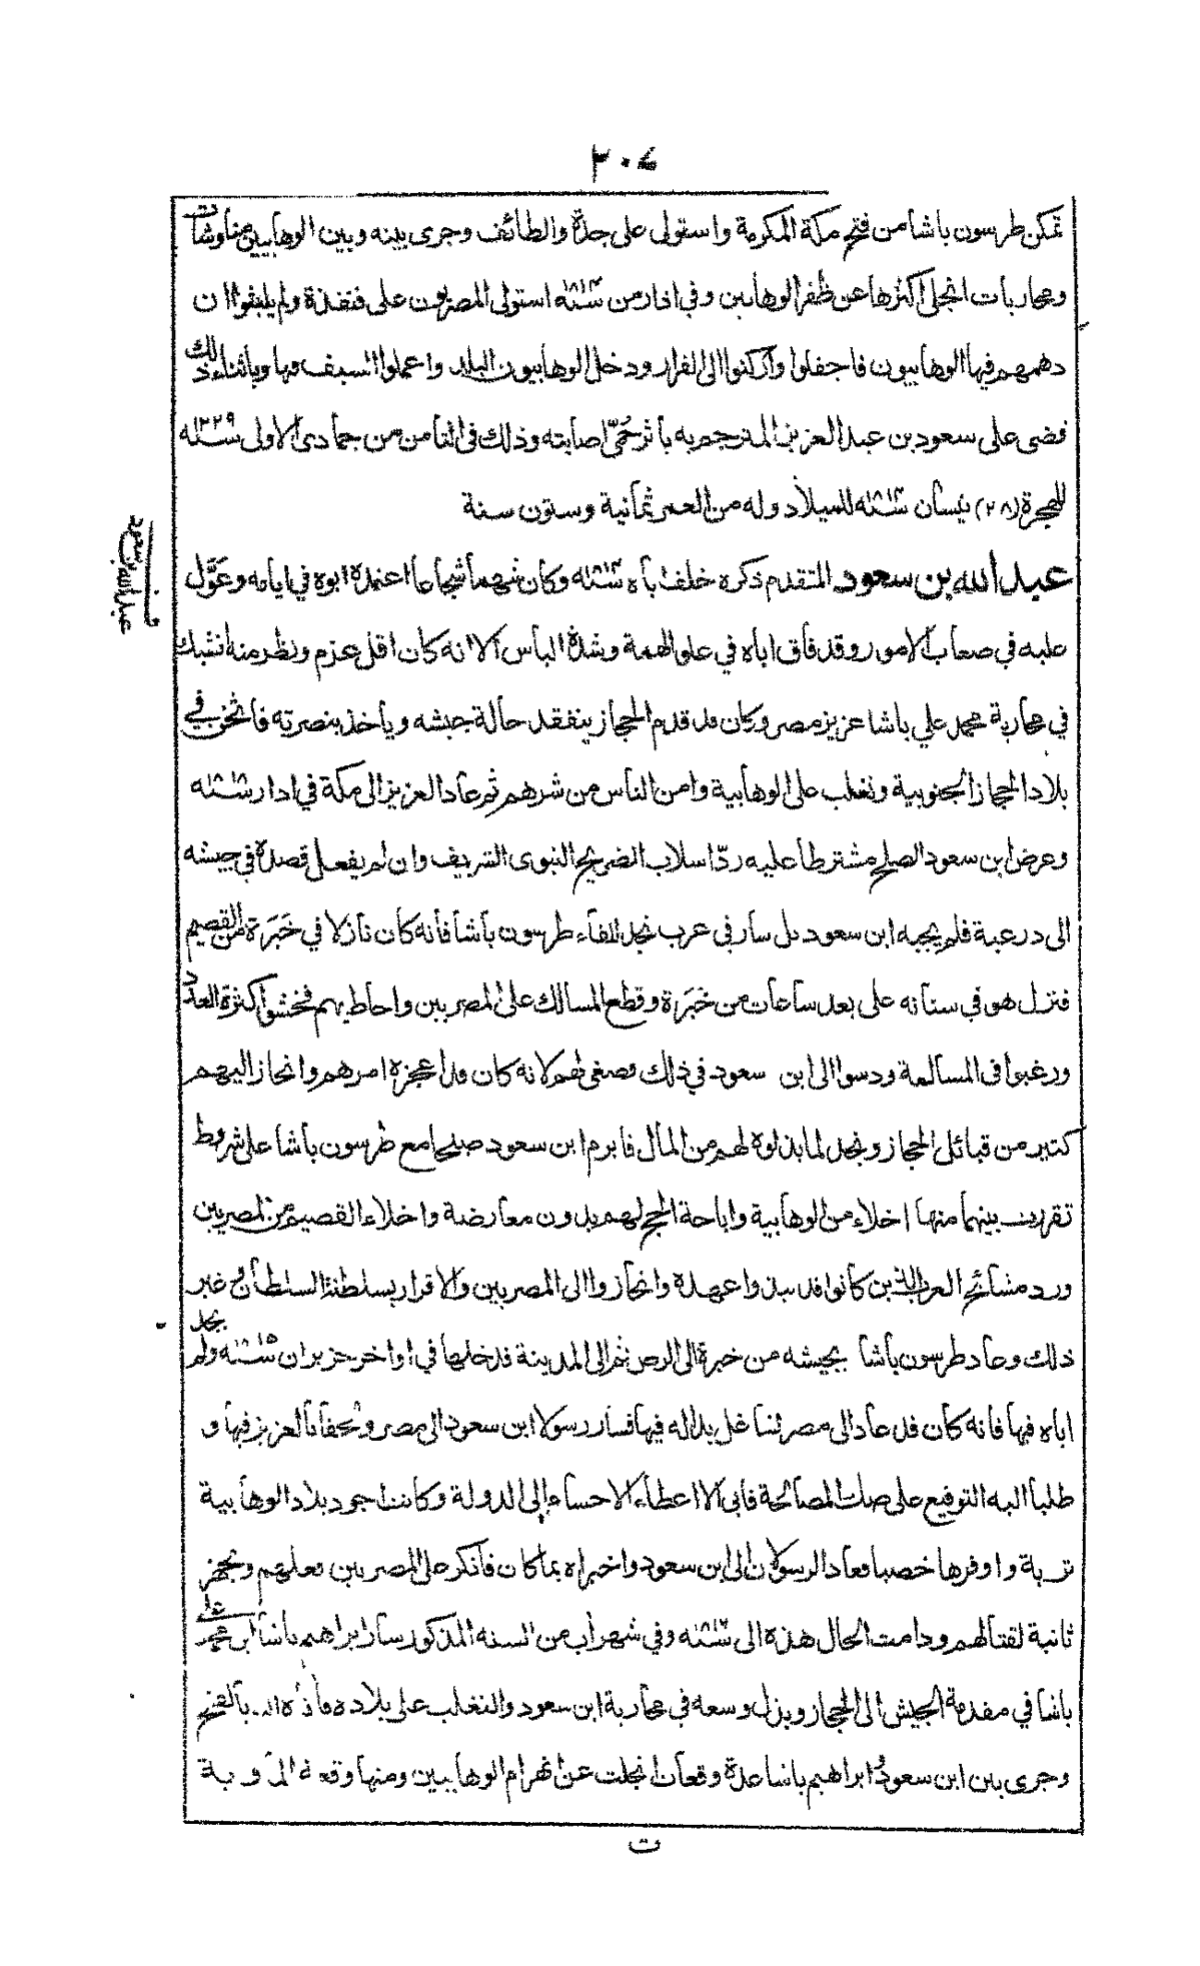 ٢٠٤
تمكن طرسون باشا من فتح مكة المكرمة واستولى على جدة والطائف وجرى بينه وبين الوهابيين مناوشات
ومحاربات انجلى اكثرها عن ظفر الوهابيين وفي اذار من سنة ١٨١٤ استولى المصريون على قنفذة ولم يلبثوا ان
دهمهم فيها الوهابيون فاجفلوا واركنوا الى الفرار ودخل الوهابيون البلد واعملوا السيف فيها وباثناء ذلك
قضى على سعود بن عبد العزيز المترجم به بأثر حُمّى اصابته وذلك في الثامن من جمادى الاولى سنة ١٢٢٩
للهجرة (٢٨) نيسان سنة ١٨١٤ للميلاد وله من العمر ثمانية وستون سنة
عبد الله بن سعود
عبد الله بن سعود المتقدم ذكره خلف اباه سنة ١٨١٤ وكان شهماً شجاعا اعتمده ابوه في ايامه وعَوَّل
عليه في صعاب الامور وقد فاق اباه في علو الهمة وشدة البأس الا انه كان اقل عزم ونظر منه انشبك
في محاربة محمد علي باشا عزيز مصر وكان قد قدم الحجاز يتفقد حالة جيشه ويأخذ بنصرته فاثخن في
بلاد الحجاز الجنوبية وتغلب على الوهابية وامن الناس من شرهم ثم عاد العزيز الى مكة في اذار سنة
وعرض ابن سعود الصلح مشترطا عليه ردّ اسلاب الضريح النبوى الشريف وان لم يفعل قصده في جيشه
الى درعية فلم يجبه ابن سعود بل سار في عرب نجد للقاء طرسون باشا فانه كان نازلا في خَبَرَة من القصيم
فنزل هو في سنانه على بعد ساعات من خَبَرَة وقطع المسالك على المصريين واحاط بهم فخشوا كثرة العدد
ورغبوا في المسالمة ودسوا الى ابن سعود في ذلك فصغى لهم لانه كان قد اعجزه امرهم وانحاز اليهم
كثير من قبائل الحجاز ونجد لما بذلوه لهم من المال فابرم ابن سعود صلحا مع طرسون باشا على شروط
تقررت بينهما منها اخلاء من الوهابية واباحة الحج لهم بدون معارضة واخلاء القصيم من المصريين
ورد مشائخ العرب الذين كانوا قد نبذوا عهده وانحازوا الى المصريين والاقرار بسلطنة السلطان وغير
ذلك وعاد طرسون باشا بجيشه من خبرة الى الرص ثم الى المدينة فدخلها في اواخر حزيران سنة ١٨١٥ ولم يجد
اباه فيها فانه كان قد عاد الى مصر لشاغل بدا له فيها فسار رسولا ابن سعود الى مصر وتحفا العزيز فيها و
طلبا اليه التوقيع على صك المصالحة فابى الا اعطاء الاحساء الى الدولة وكانت اجود بلاد الوهابية
تربة واوفرها خصبا فعاد الرسولان الى ابن سعود واخبراه بما كان فانكر على المصريين فعلهم وتجهز
ثانية لقتالهم ودامت الحال هذه الى سنة وفي شهر اب من السنه المذكور سار ابراهيم باشا ابن محمد علي
باشا في مقدمة الجيش الى الحجاز وبذل وسعه في محاربة ابن سعود والتغلب على بلاده بالفتح
وجرى بين ابن سعود وابراهيم باشا عدة وقعات انجلت عن انهرام الوهابيين ومنها وقعة
ت